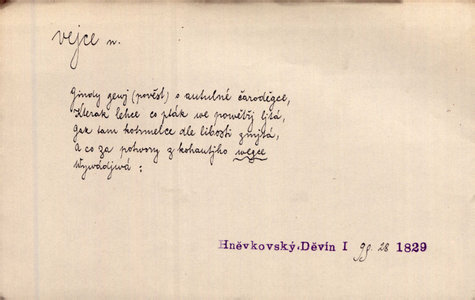 vejce n.
Gindy gewj (pověst) o autulné čaroděgce,
Kterak lehce co pták we powětřj ljtá,
Gak tam kotrmelce dle libosti zmjtá,
A co za potwory z kohautjho wegce
Wywádjwá :
Hněvkovský, Děvín I 98. 28 1829